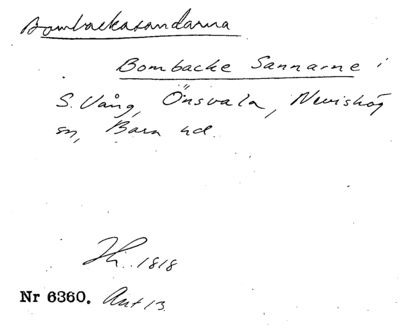 Bombackasandarna
Bombacke Sannarne i
S. Vång, Önsvala, Nevishög
sn, Bara hd.
1818
Nr 6360. Akt 13.